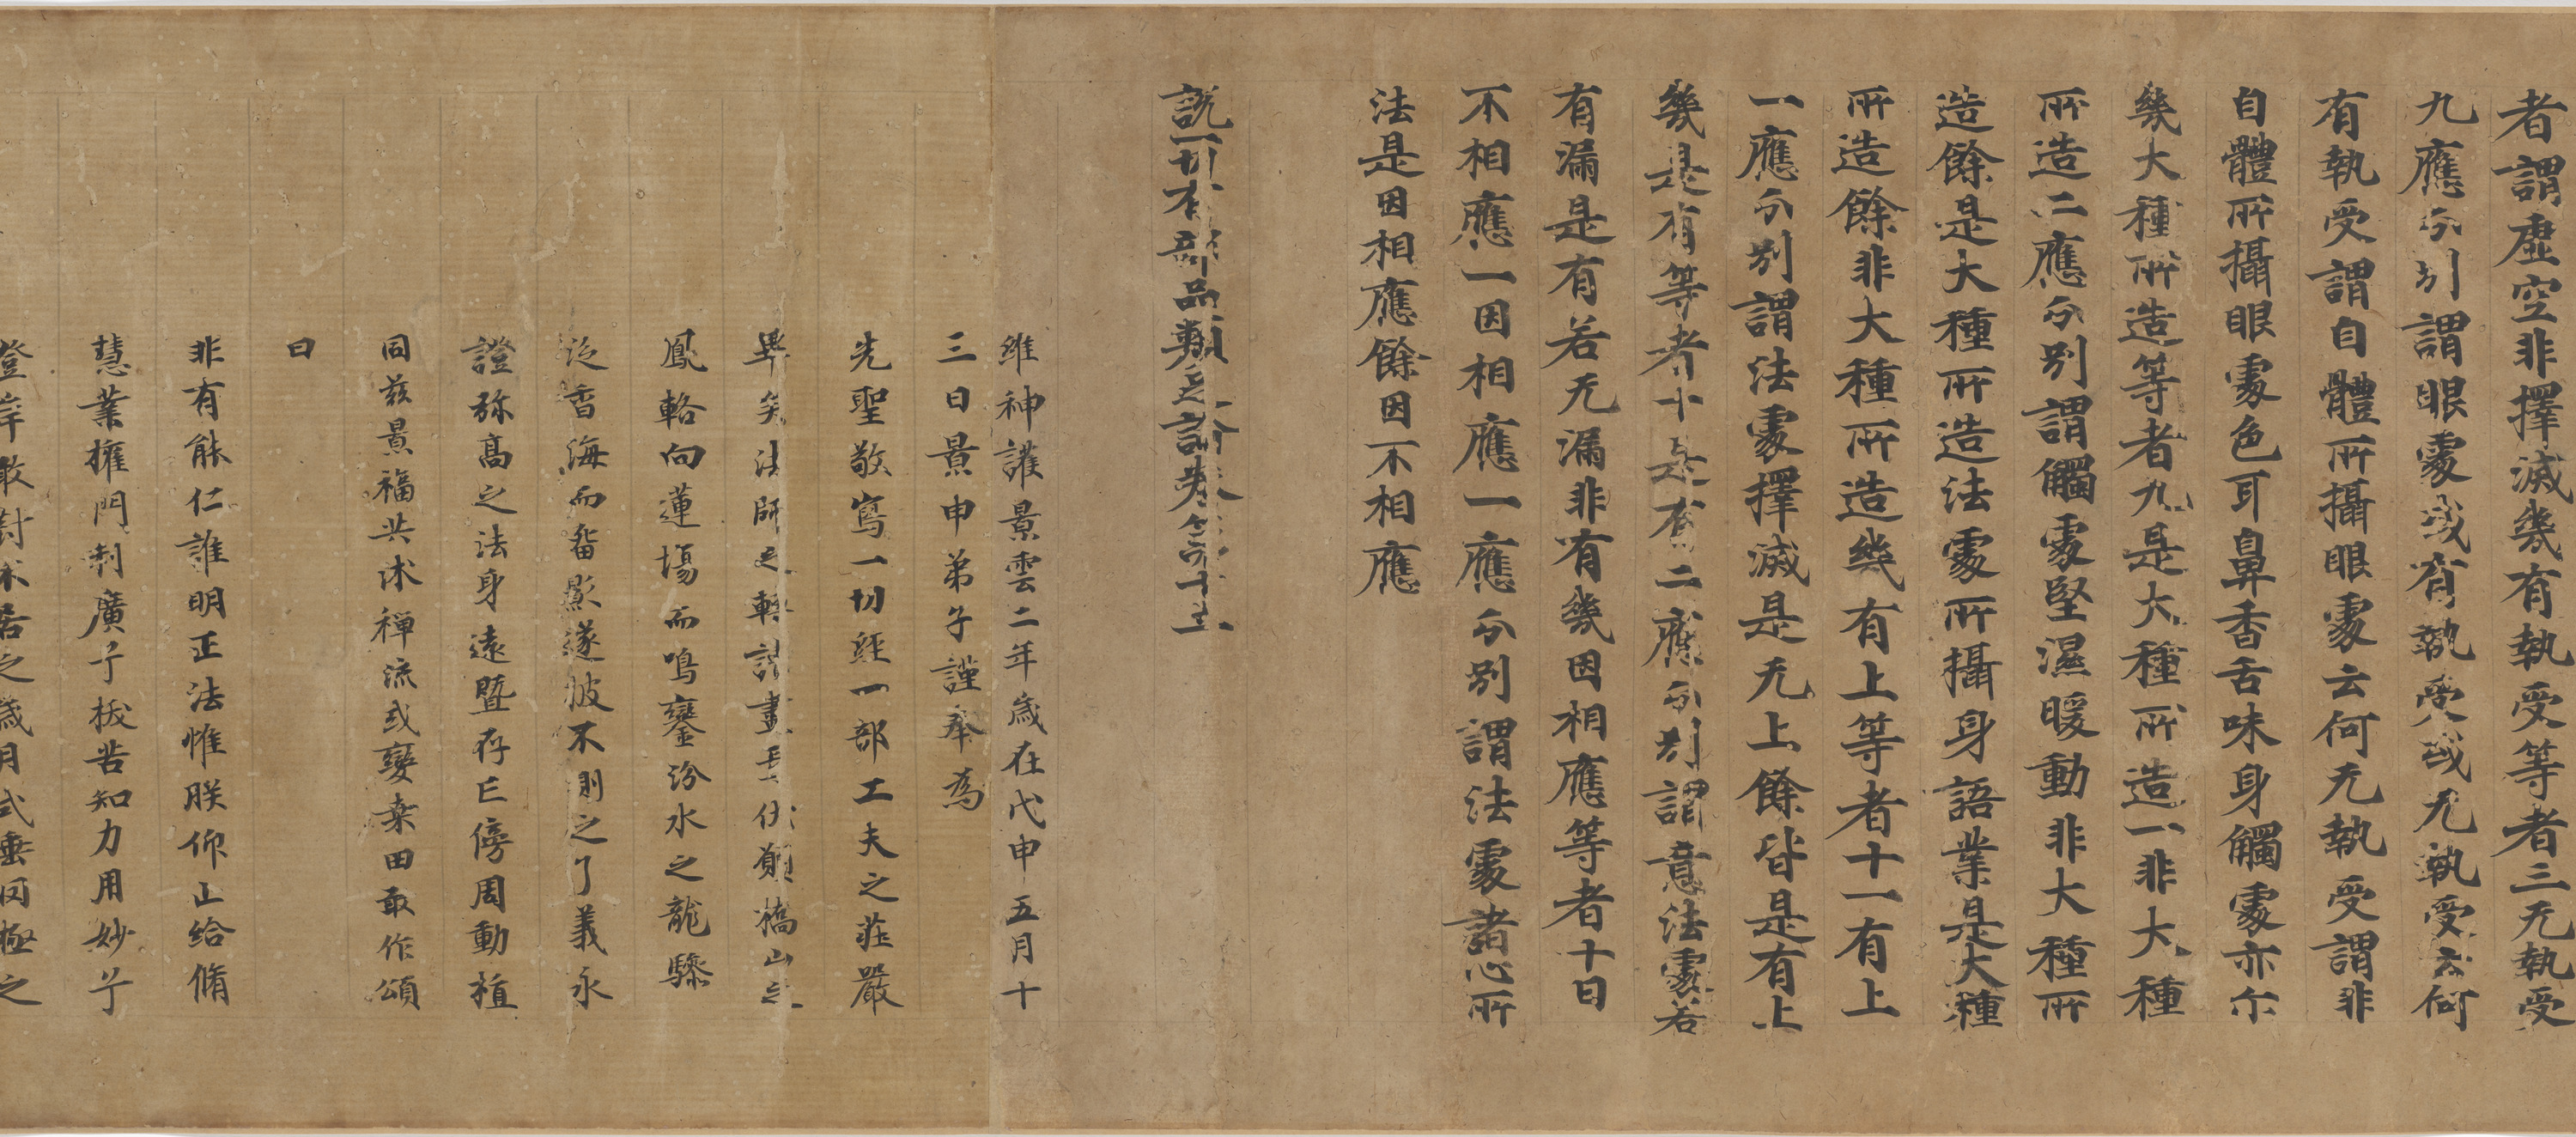 者謂虛空非擇滅幾有執受等者三无執受
九應分別謂眼處或有執受或无執受云何
有執受謂自體所攝眼處云何无執受謂非
自體所攝眼處色耳鼻香舌味身觸處亦尒
幾大種所造等者九是大種所造一非大種
所造二應分別謂觸處堅濕暖動非大種所
造餘是大種所造法處所攝身語業是大種
所造餘非大種所造幾有上等者十一有上
一應分別謂法處擇滅是无上餘皆是有上
幾是有等者十是有二應分別謂意法處若
有漏是有若无漏非有幾因相應等者十因
不相應一因相應一應分別謂法處諸心所
法是因相應餘因不相應
說一切有部品類足論卷第十五
維神護景雲二年歲在戊申五月十
三日景申弟子謹奉為
先聖敬寫一切經一部工夫之莊嚴
畢矣法師之轉讀盡焉伏願橋山之
鳳輅向蓮場而鳴鑾汾水之龍驂
泛香海而留影遂披不測之了義永
證彌高之法身遠暨存亡傍周動植
同茲景福共沐禪流或變桑田敢作頌
曰
非有能仁誰明正法惟朕仰止給脩
慧業權門利廣兮拔苦知力用妙兮
登岸敢對不居之歲月式垂罔極之